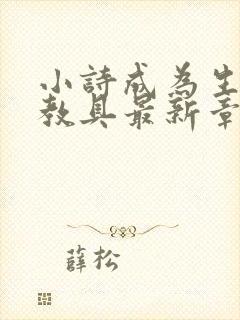 小詩成為生
教具最新章
薛松